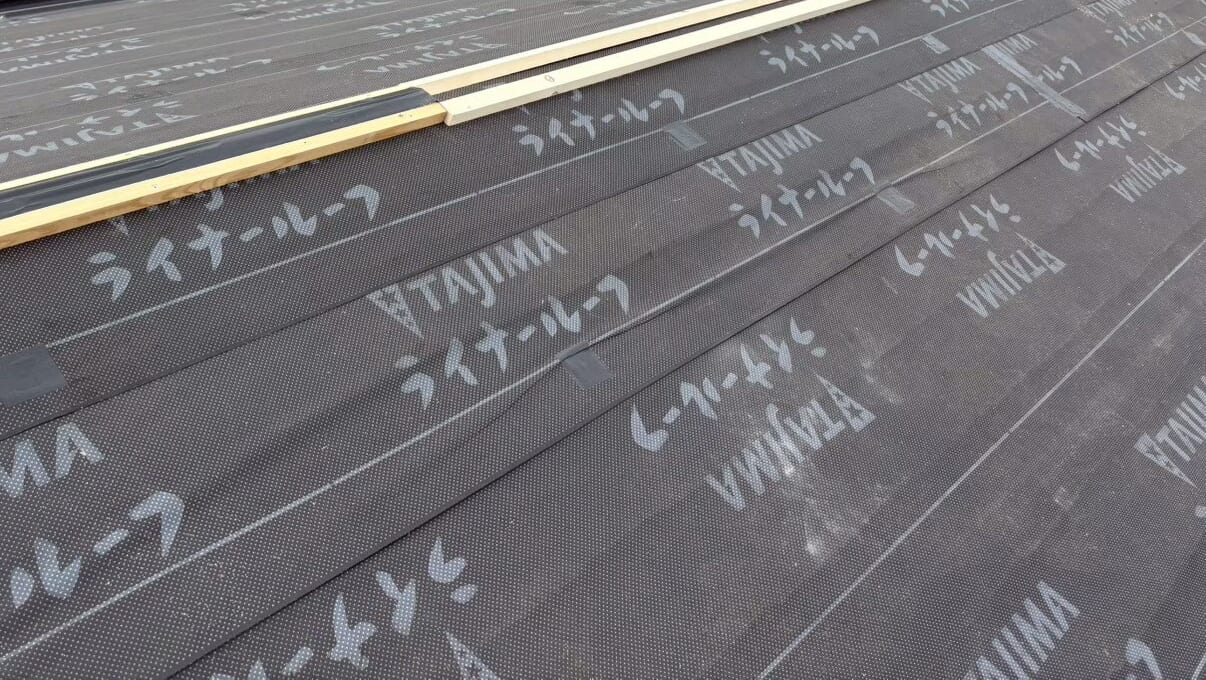 TAJIMA
TAJIMA
ライナールーフ
TAJIMA
ライナールーフ
ライナールーフ
TAJIMA
ライナールーフ
ライナールーフ
TAJIMA
ライナールーフ
TAJIMA
ライナールーフ
ライナールーフ
TAJIMA
ライナールーフ
TAJIMA
ライナールーフ
TAJIMA
MA
ルーフ
ライナー
TAJIMA